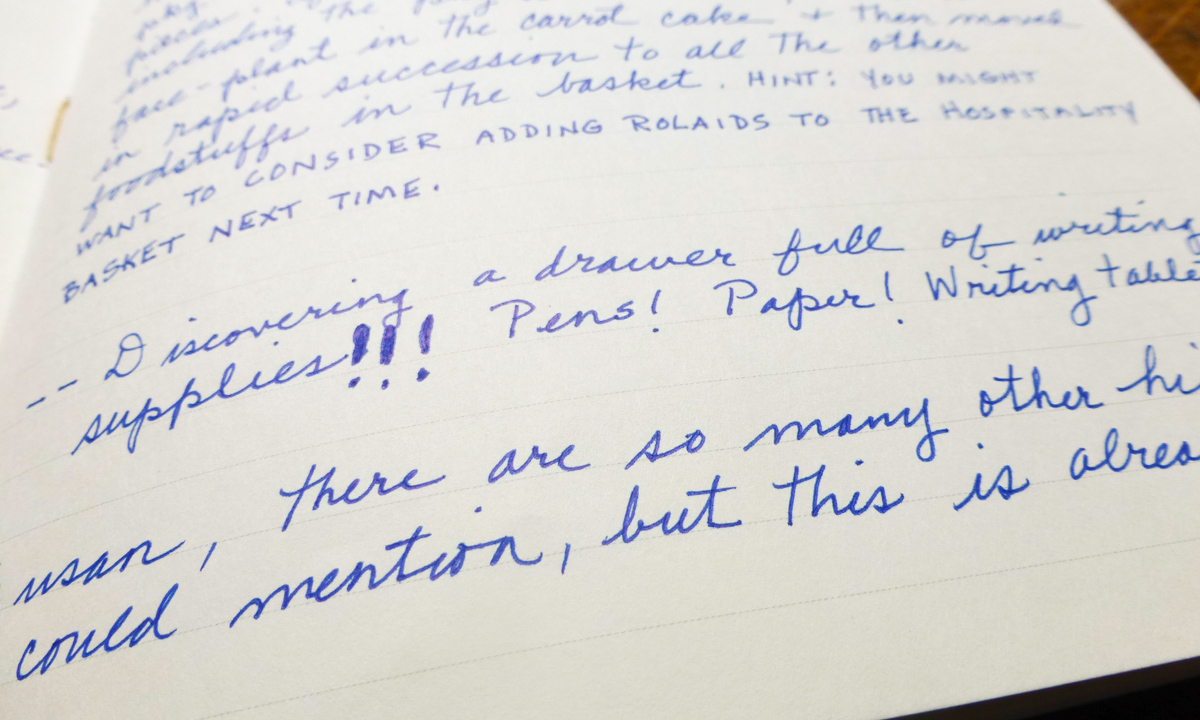 including the
face-plant in the carrot cake + then moved
in rapid succession to all the other
foodstuffs in the basket. HINT: YOU MIGHT
WANT TO CONSIDER ADDING ROLAIDS TO THE HOSPITALITY
BASKET NEXT TIME.
-- Discovering a drawer full of writing
supplies!!! Pens! Paper! Writing table
usan, there are so many other hi
could mention, but this is alrea